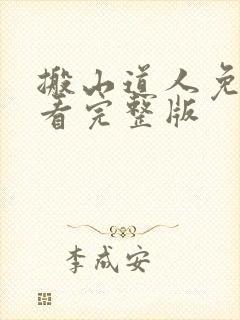 搬山道人免
看完整版
李成安